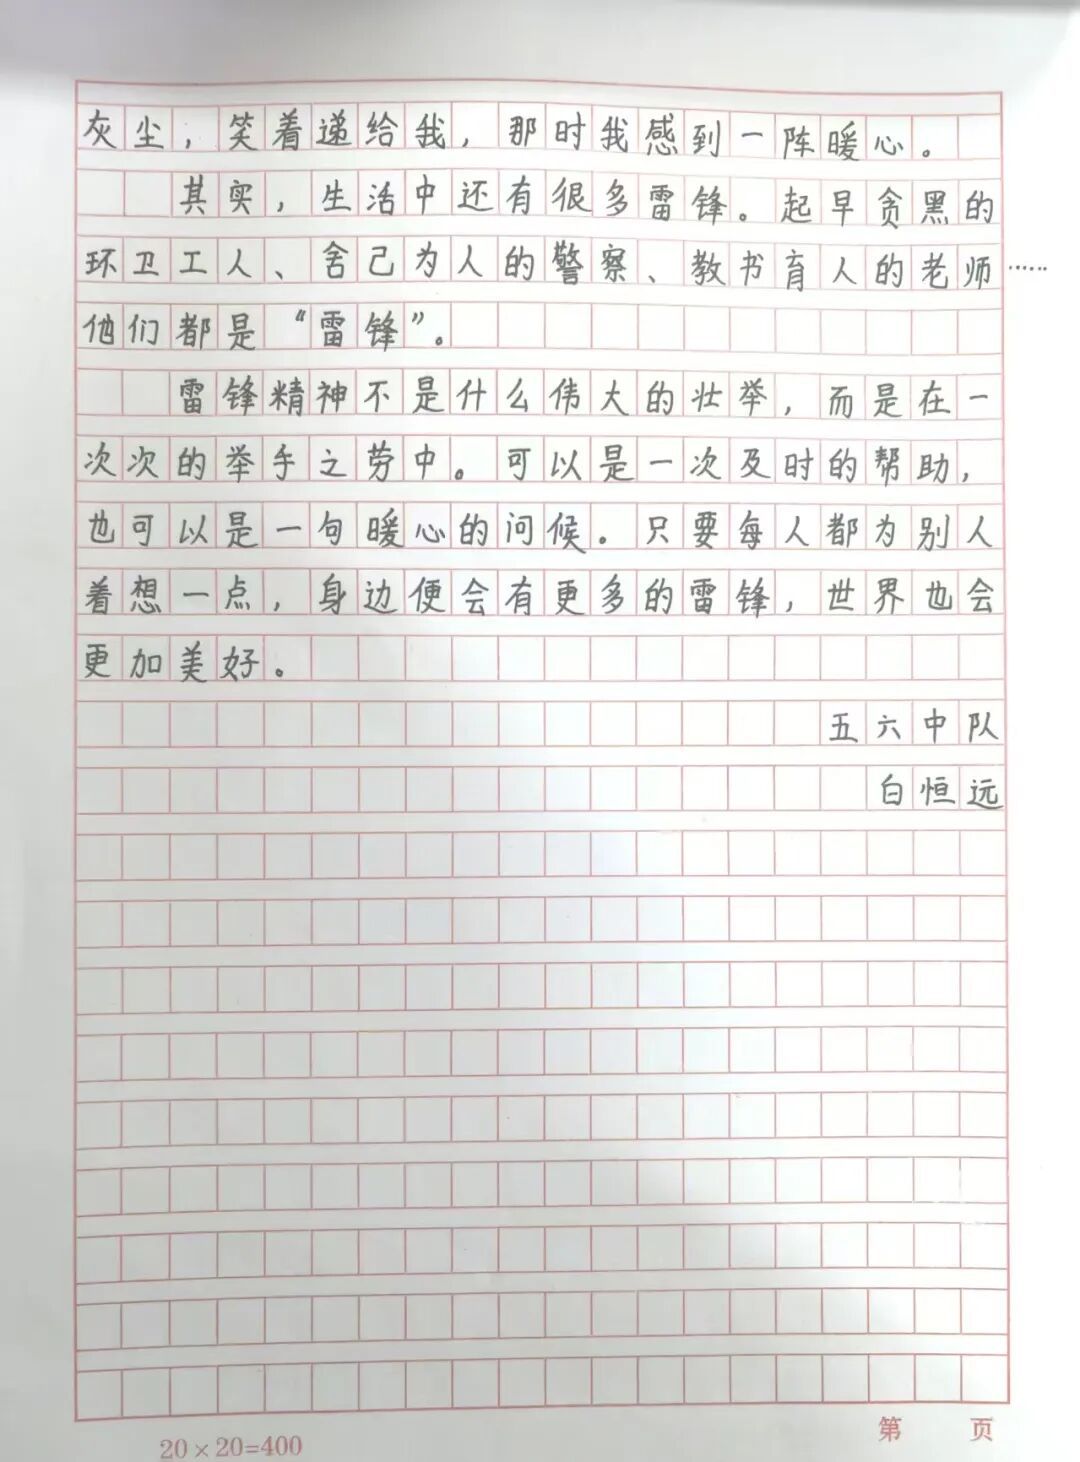 灰尘，笑着递给我，那时我感到一阵暖心。
其实，生活中还有很多雷锋。起早贪黑的
环卫工人、舍己为人的警察、教书育人的老师……
他们都是“雷锋”。
雷锋精神不是什么伟大的壮举，而是在一
次次的举手之劳中。可以是一次及时的帮助，
也可以是一句暖心的问候。只要每人都为别人
着想一点，身边便会有更多的雷锋，世界也会
更加美好。
五六中队
白恒远
第 页
20×20=400